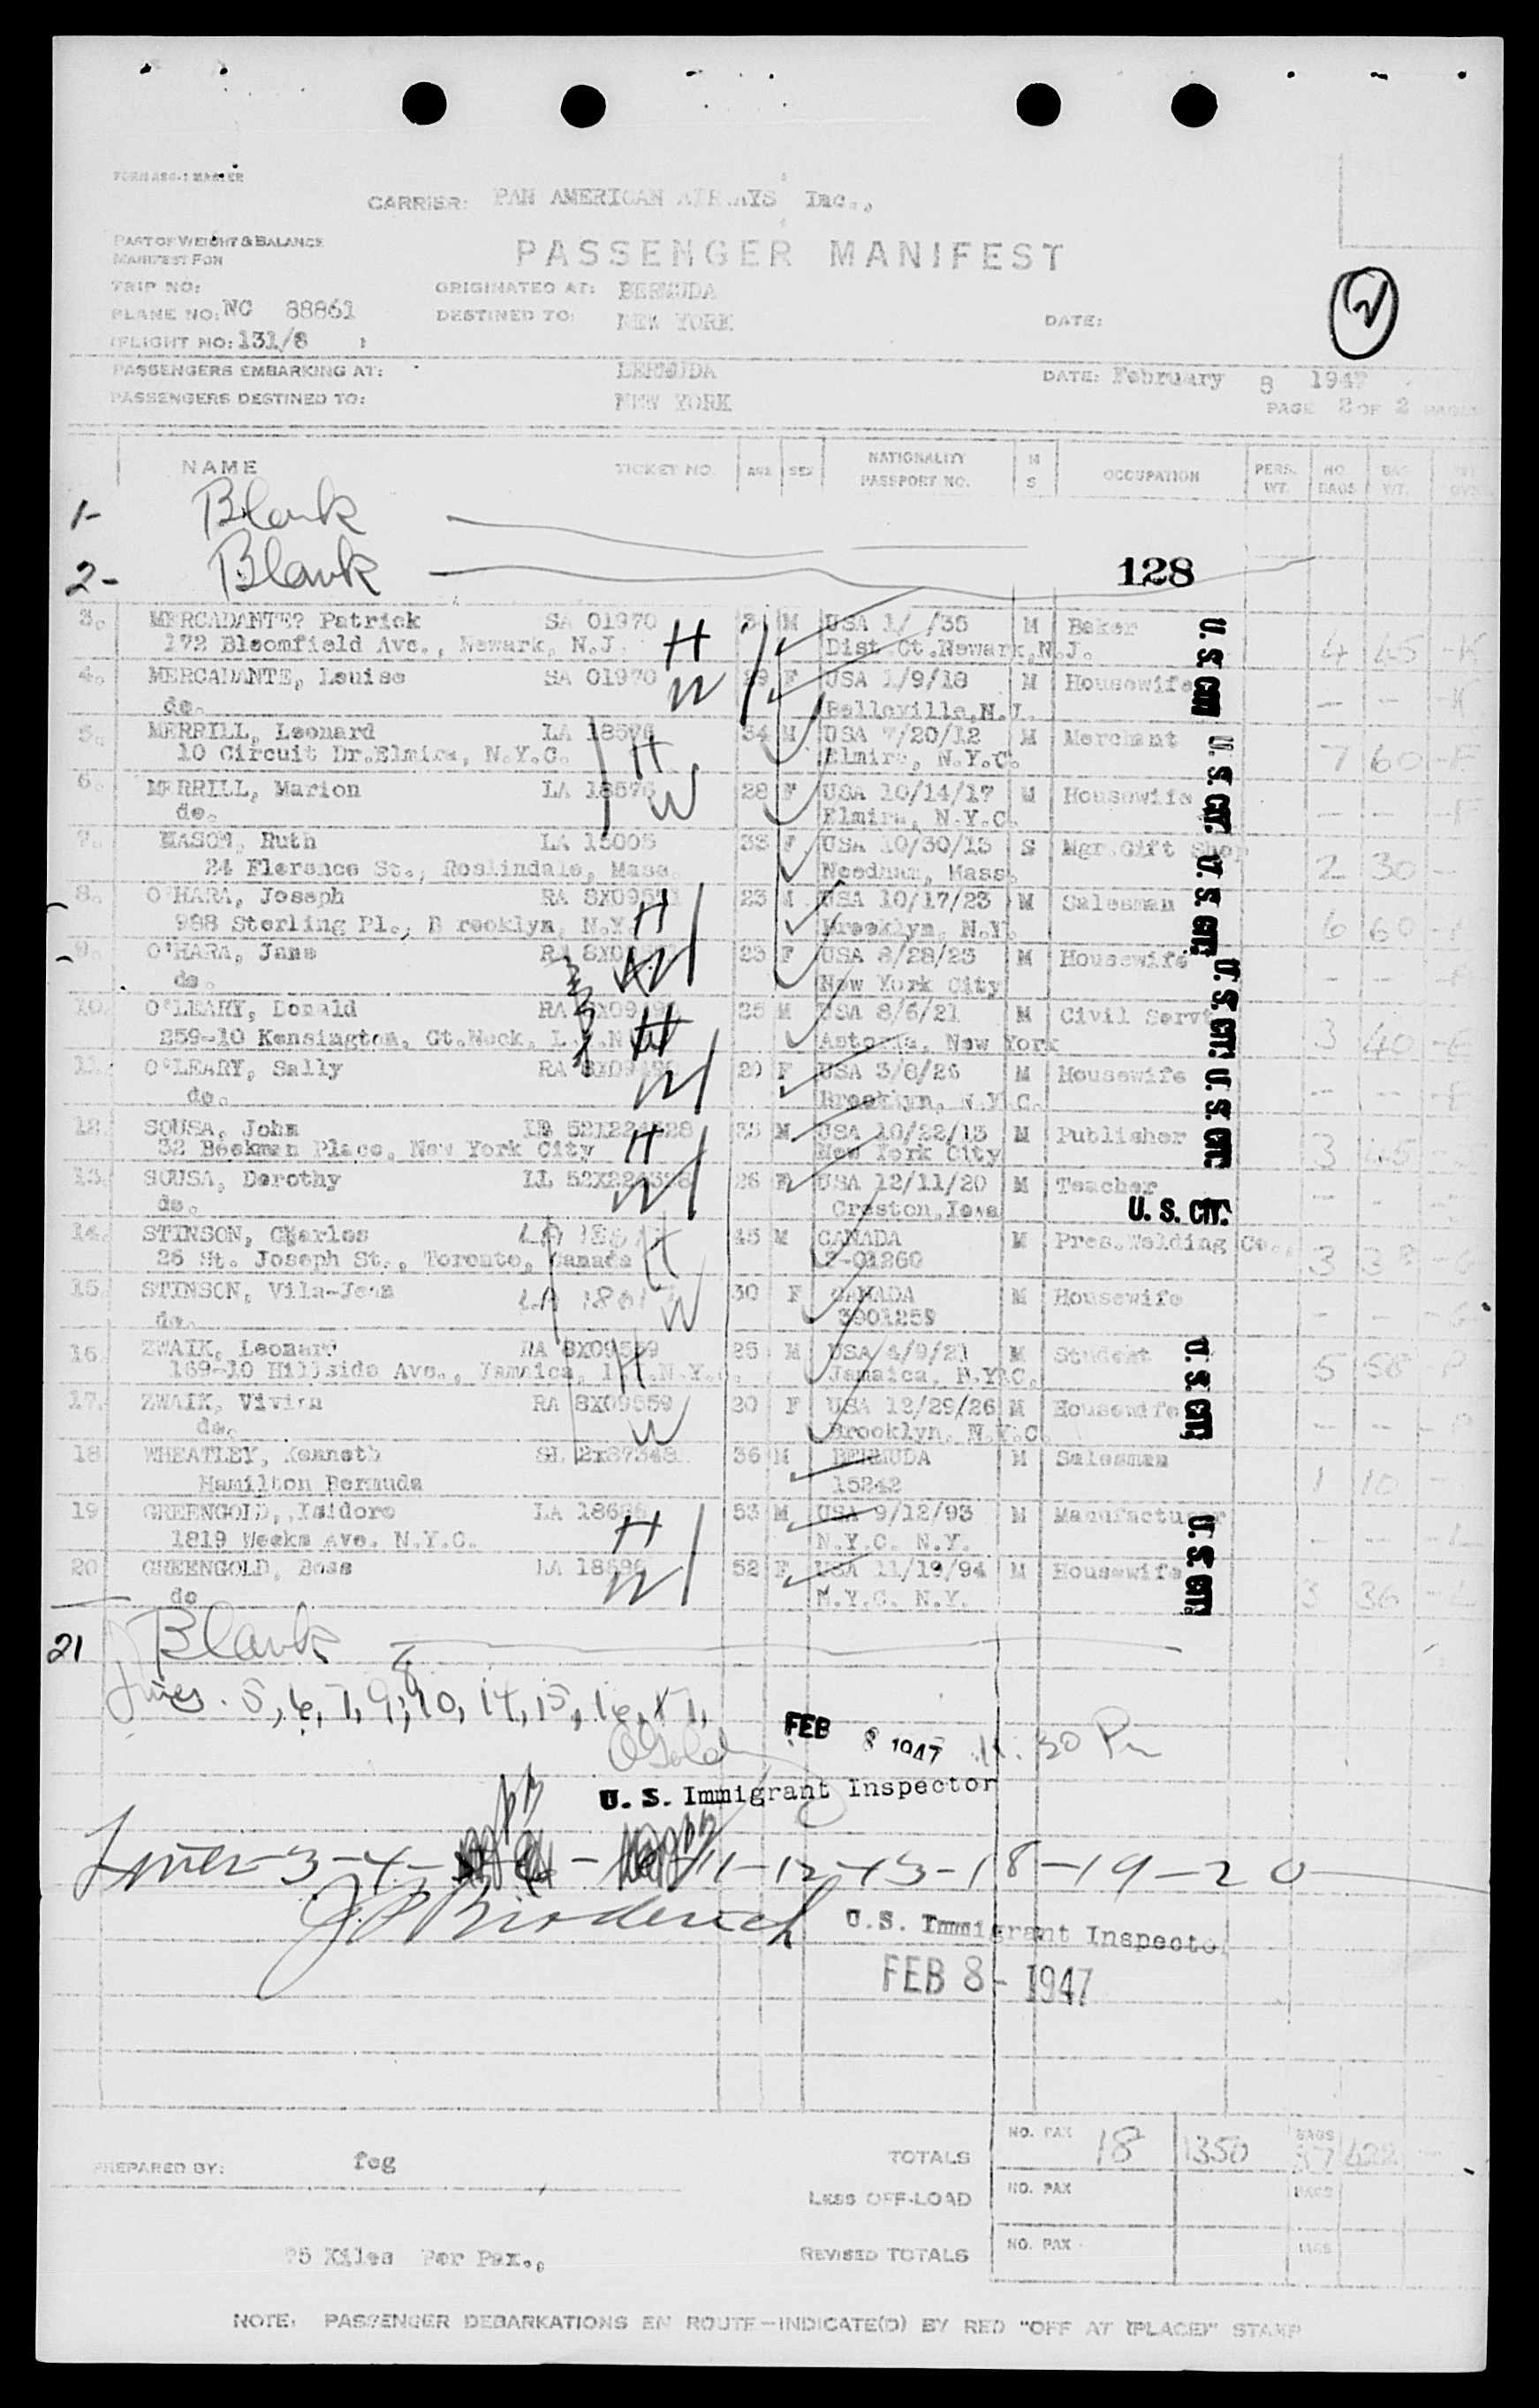 FORM ASG-1 MASTER
CARRIER: PAN AMERICAN AIRWAYS Inc.,
PART OF WEIGHT & BALANCE
MANIFEST FOR
PASSENGER MANIFEST
TRIP NO:
ORIGINATED AT: BERMUDA
PLANE NO: NC 88861
DESTINED TO: NEW YORK
DATE:
2
FLIGHT NO: 131/8
PASSENGERS EMBARKING AT: BERMUDA
DATE: February 8 1947
PASSENGERS DESTINED TO: NEW YORK
PAGE 2 OF 2 PAGES
NAME TICKET NO. AGE SEX NATIONALITY PASSPORT NO. M S OCCUPATION PERS. WT. NO. BAGS BAG WT.
1- Blank
2- Blank
128
3. MERCADANTE? Patrick SA 01970 M USA 1/ /35 M Baker 4 45 -K
172 Bloomfield Ave., Newark, N.J. H Dist Ct.Newark,N.J.
4. MERCADANTE, Louise SA 01970 29 F USA 1/9/18 M Housewife — — -K
do. W Belleville,N.J.
5. MERRILL, Leonard LA 18576 34 M USA 7/20/12 M Merchant 7 60 -F
10 Circuit Dr.Elmira, N.Y.C. H Elmira, N.Y.C.
6. MERRILL, Marion LA 18576 28 F USA 10/14/17 M Housewife — — -F
do. W Elmira, N.Y.C.
7. MASON, Ruth LA 15005 33 F USA 10/30/13 S Mgr.Gift Shop 2 30 —
24 Florence St., Roslindale, Mass. Needham, Mass.
8. O'HARA, Joseph RA 23 M USA 10/17/23 M Salesman 6 60
988 Sterling Pl., B rooklyn, N.Y. H Brooklyn, N.Y.
9. O'HARA, Jane RA 23 F USA 8/28/23 M Housewife — —
do. W New York City
10. O'LEARY, Donald RA 25 M USA 8/6/21 M Civil Servt 3 40 -E
259-10 Kensington, Gt.Neck, L. H Astoria, New York
11. O'LEARY, Sally RA 20 F USA 3/8/26 M Housewife — — -E
do. W Brooklyn, N.Y.C.
12. SOUSA, John 33 M USA 10/22/13 M Publisher 3 45
32 Beekman Place, New York City H New York City
13. SOUSA, Dorothy LL 26 F USA 12/11/20 M Teacher — —
do. W Creston,Iowa
14. STINSON, Charles LA H 45 M CANADA M Pres.Welding Co., 3 38 -G
26 St. Joseph St., Toronto, Canada 2-01260
15. STINSON, Vila-Jean LA W 30 F CANADA M Housewife — — -G
do. 3901259
16. ZWAIK, Leonard RA 8X09559 25 M USA 4/9/21 M Student 5 58
169-10 Hillside Ave., Jamaica, H Jamaica, N.Y.C.
17. ZWAIK, Vivian RA 8X09559 20 F USA 12/29/26 M Housewife — —
do. W Brooklyn, N.Y.C.
18 WHEATLEY, Kenneth SL 2X87348 36 M BERMUDA M Salesman 1 10 —
Hamilton Bermuda 15242
19 GREENGOLD, Isidore LA 18686 53 M USA 9/12/93 M Manufacturer — — -L
1819 Weeks Ave. N.Y.C. H N.Y.C. N.Y.
20 GREENGOLD, Bess LA 18686 52 F USA 11/19/94 M Housewife 3 36 -L
do W N.Y.C. N.Y.
U. S. CIT. U. S. CIT. U. S. CIT. U. S. CIT. U. S. CIT.
U. S. CIT.
U. S. CIT.
U. S. CIT.
21 Blank
8
Lines. 5, 6, 7, 9, 10, 14, 15, 16, 17,
FEB 8 1947 11.30 Pm
U. S. Immigrant Inspector
Lines-3-4- - 11-12-13-18-19-20
J P Broderick U.S. Immigrant Inspector
FEB 8- 1947
TOTALS NO. PAX 18 1350 BAGS 37 622
PREPARED BY: feg
LESS OFF-LOAD NO. PAX BAGS
75 Kilos Per Pax.,
REVISED TOTALS NO. PAX BAGS
NOTE: PASSENGER DEBARKATIONS EN ROUTE—INDICATE(D) BY RED "OFF AT (PLACE)" STAMP